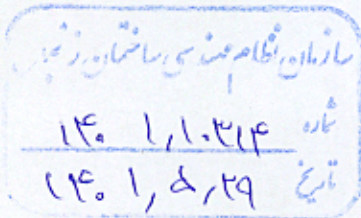 سازمان نظام مهندسی ساختمان زنجان
شماره ۱۴۰۱٫۱۰۳۱۴
تاریخ ۱۴۰۱٫۵٫۲۹